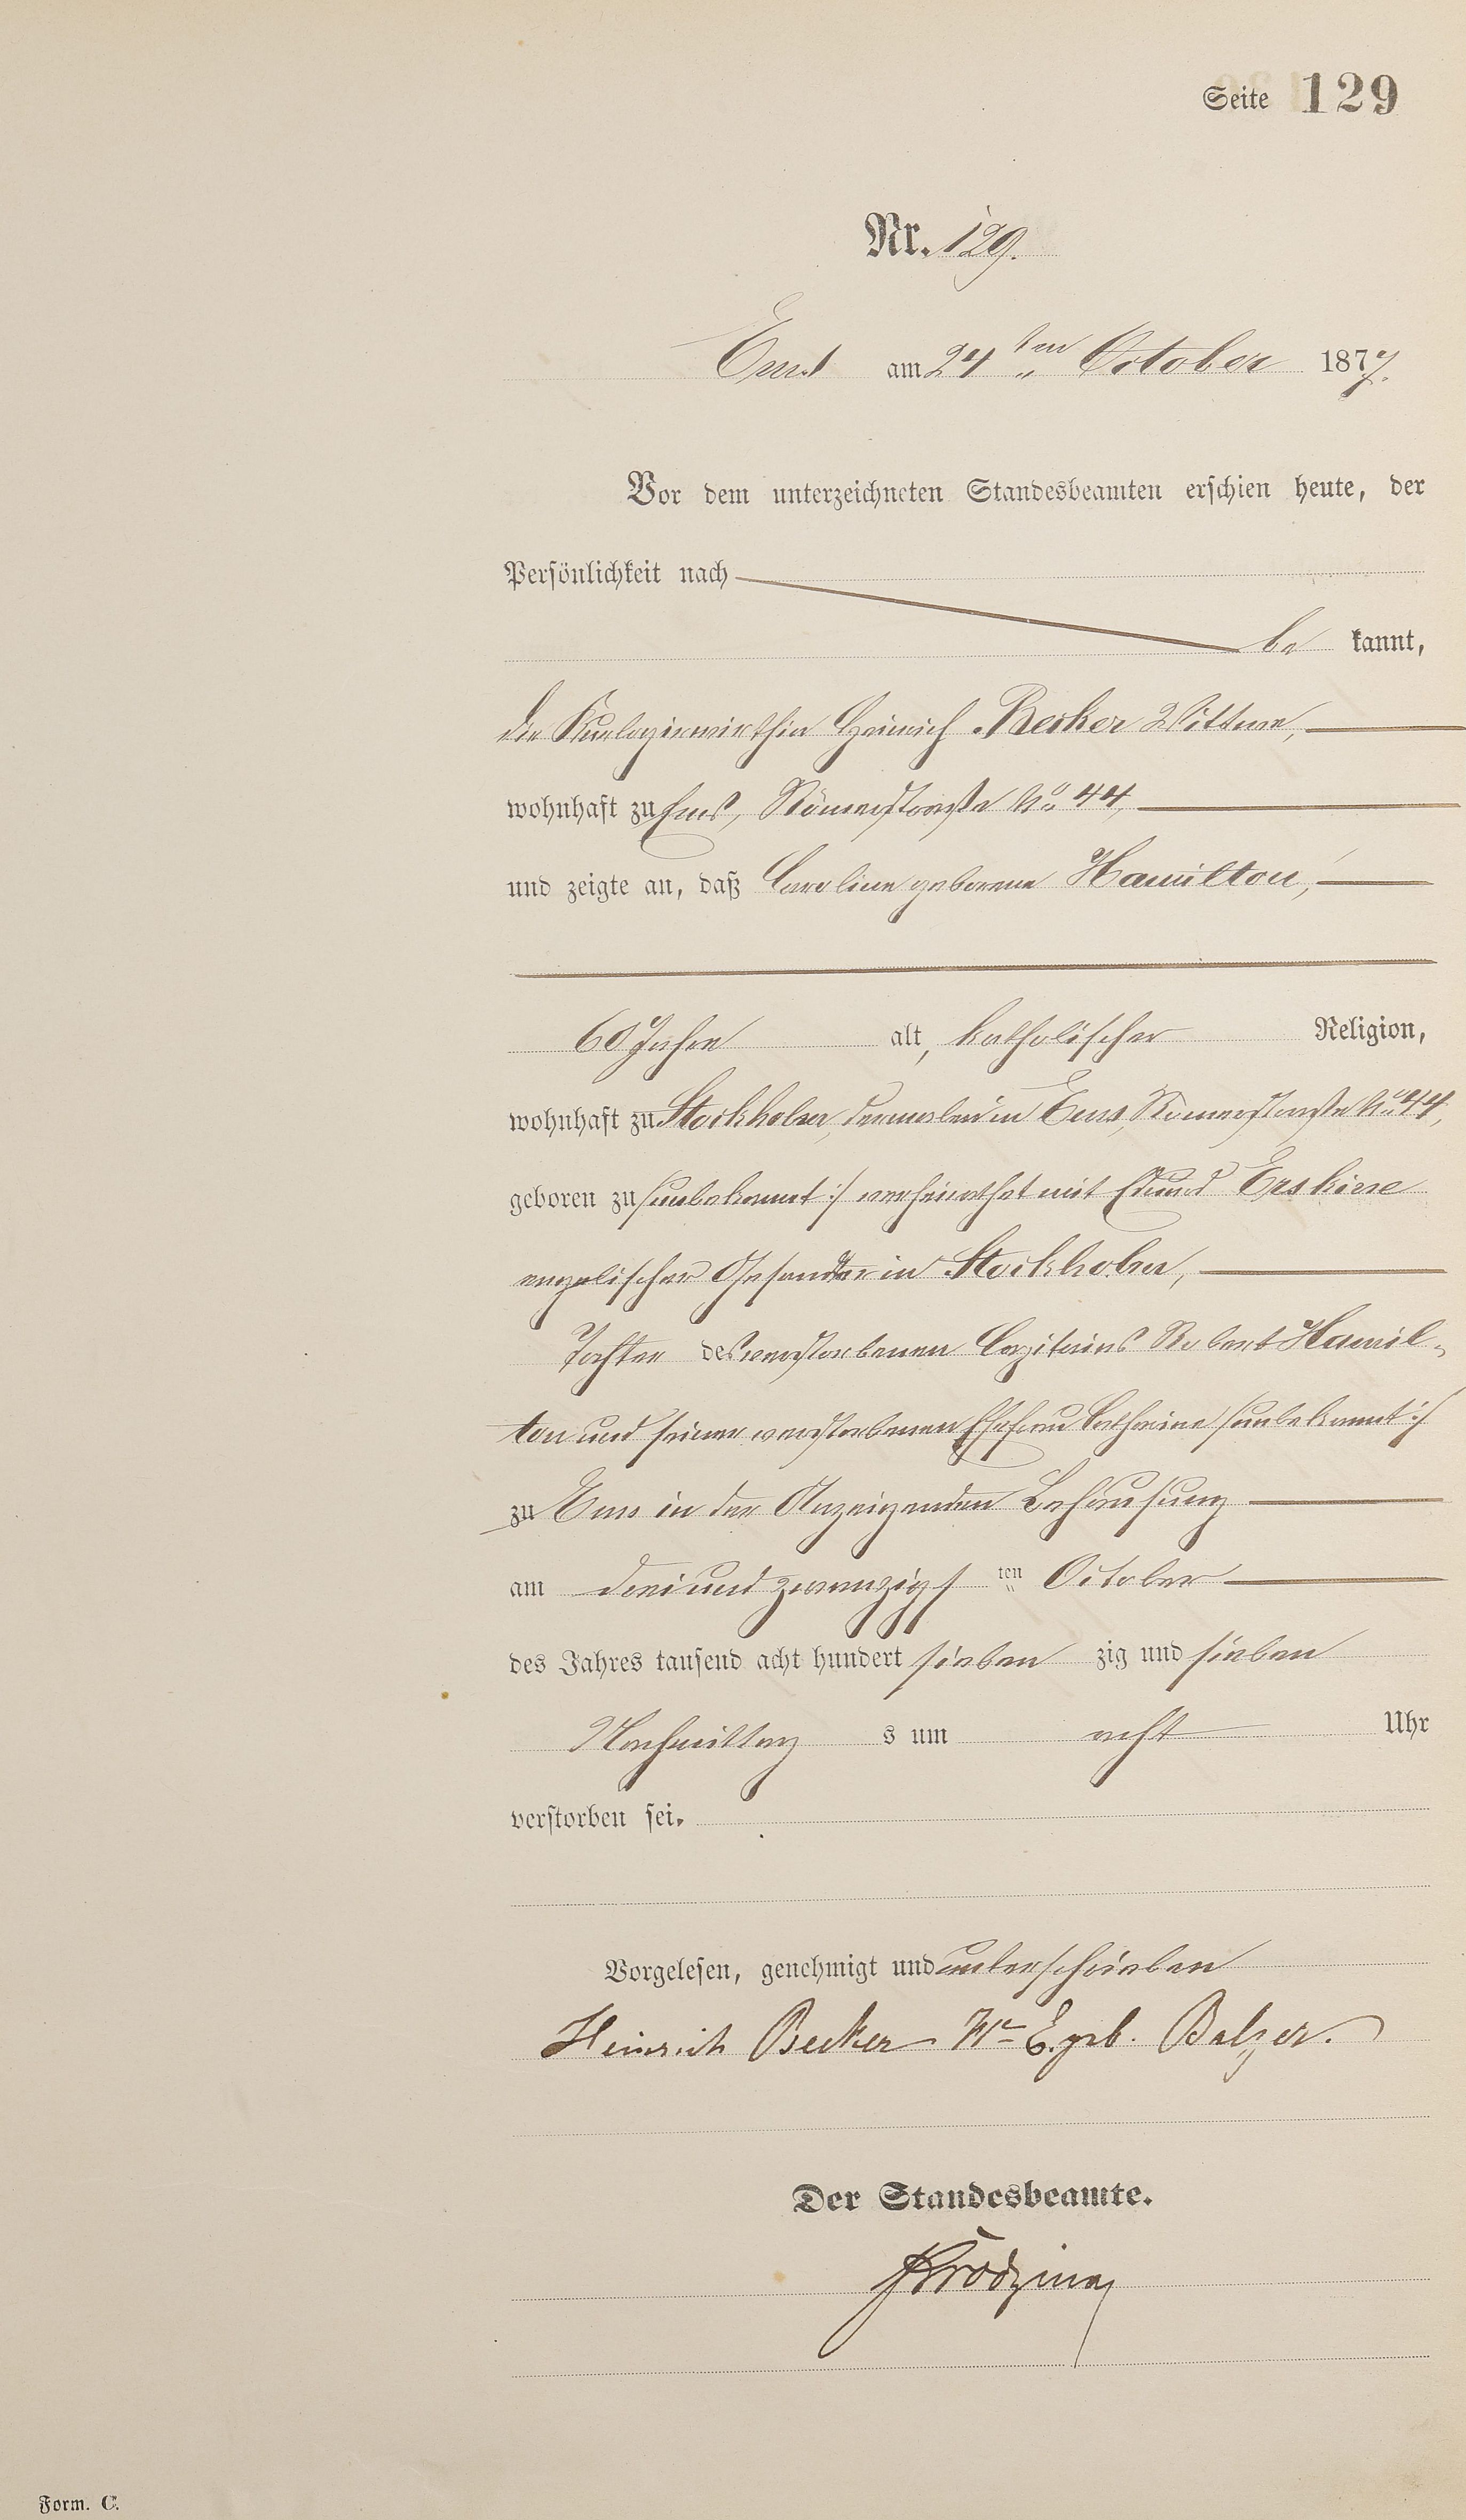 Seite 129
Nr. 129.
Ems am 24ten October 1877.
Vor dem unterzeichneten Standesbeamten erschien heute, der
Persönlichkeit nach
be kannt,
die Kurlogirwirthin Heinrich Becker Wittwe,
wohnhaft zu Ems, Römerstraße No 44,
und zeigte an, daß Caroline geborene Hamilton,
60 Jahre alt, katholischer Religion,
wohnhaft zu Stockholm, dermalen in Ems, Römerstraße No 44,
geboren zu /:unbekannt:/ verheirathet mit Eduard Erskine
englischer Gesandter in Stockholm,
Tochter des verstorbenen Capitains Robert Hamil-
ton und seiner verstorbenen Ehefrau Catharine /:unbekannt:/
zu Ems in der Anzeigenden Behausung
am drei und zwanzigs ten October
des Jahres tausend acht hundert sieben zig und sieben
Nachmittag s um acht Uhr
verstorben sei.
Vorgelesen, genehmigt und unterschrieben
Heinrich Becker Wwe E. geb. Balzer.
Der Standesbeamte.
Form. C.